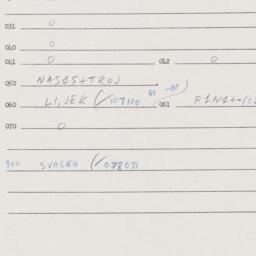 031 0
040 0
041 0 042 0
050 NASIS+TROJ
060 LIJEK (/107100 061 RINI+-(
070 0
900 SVASEG (/078071